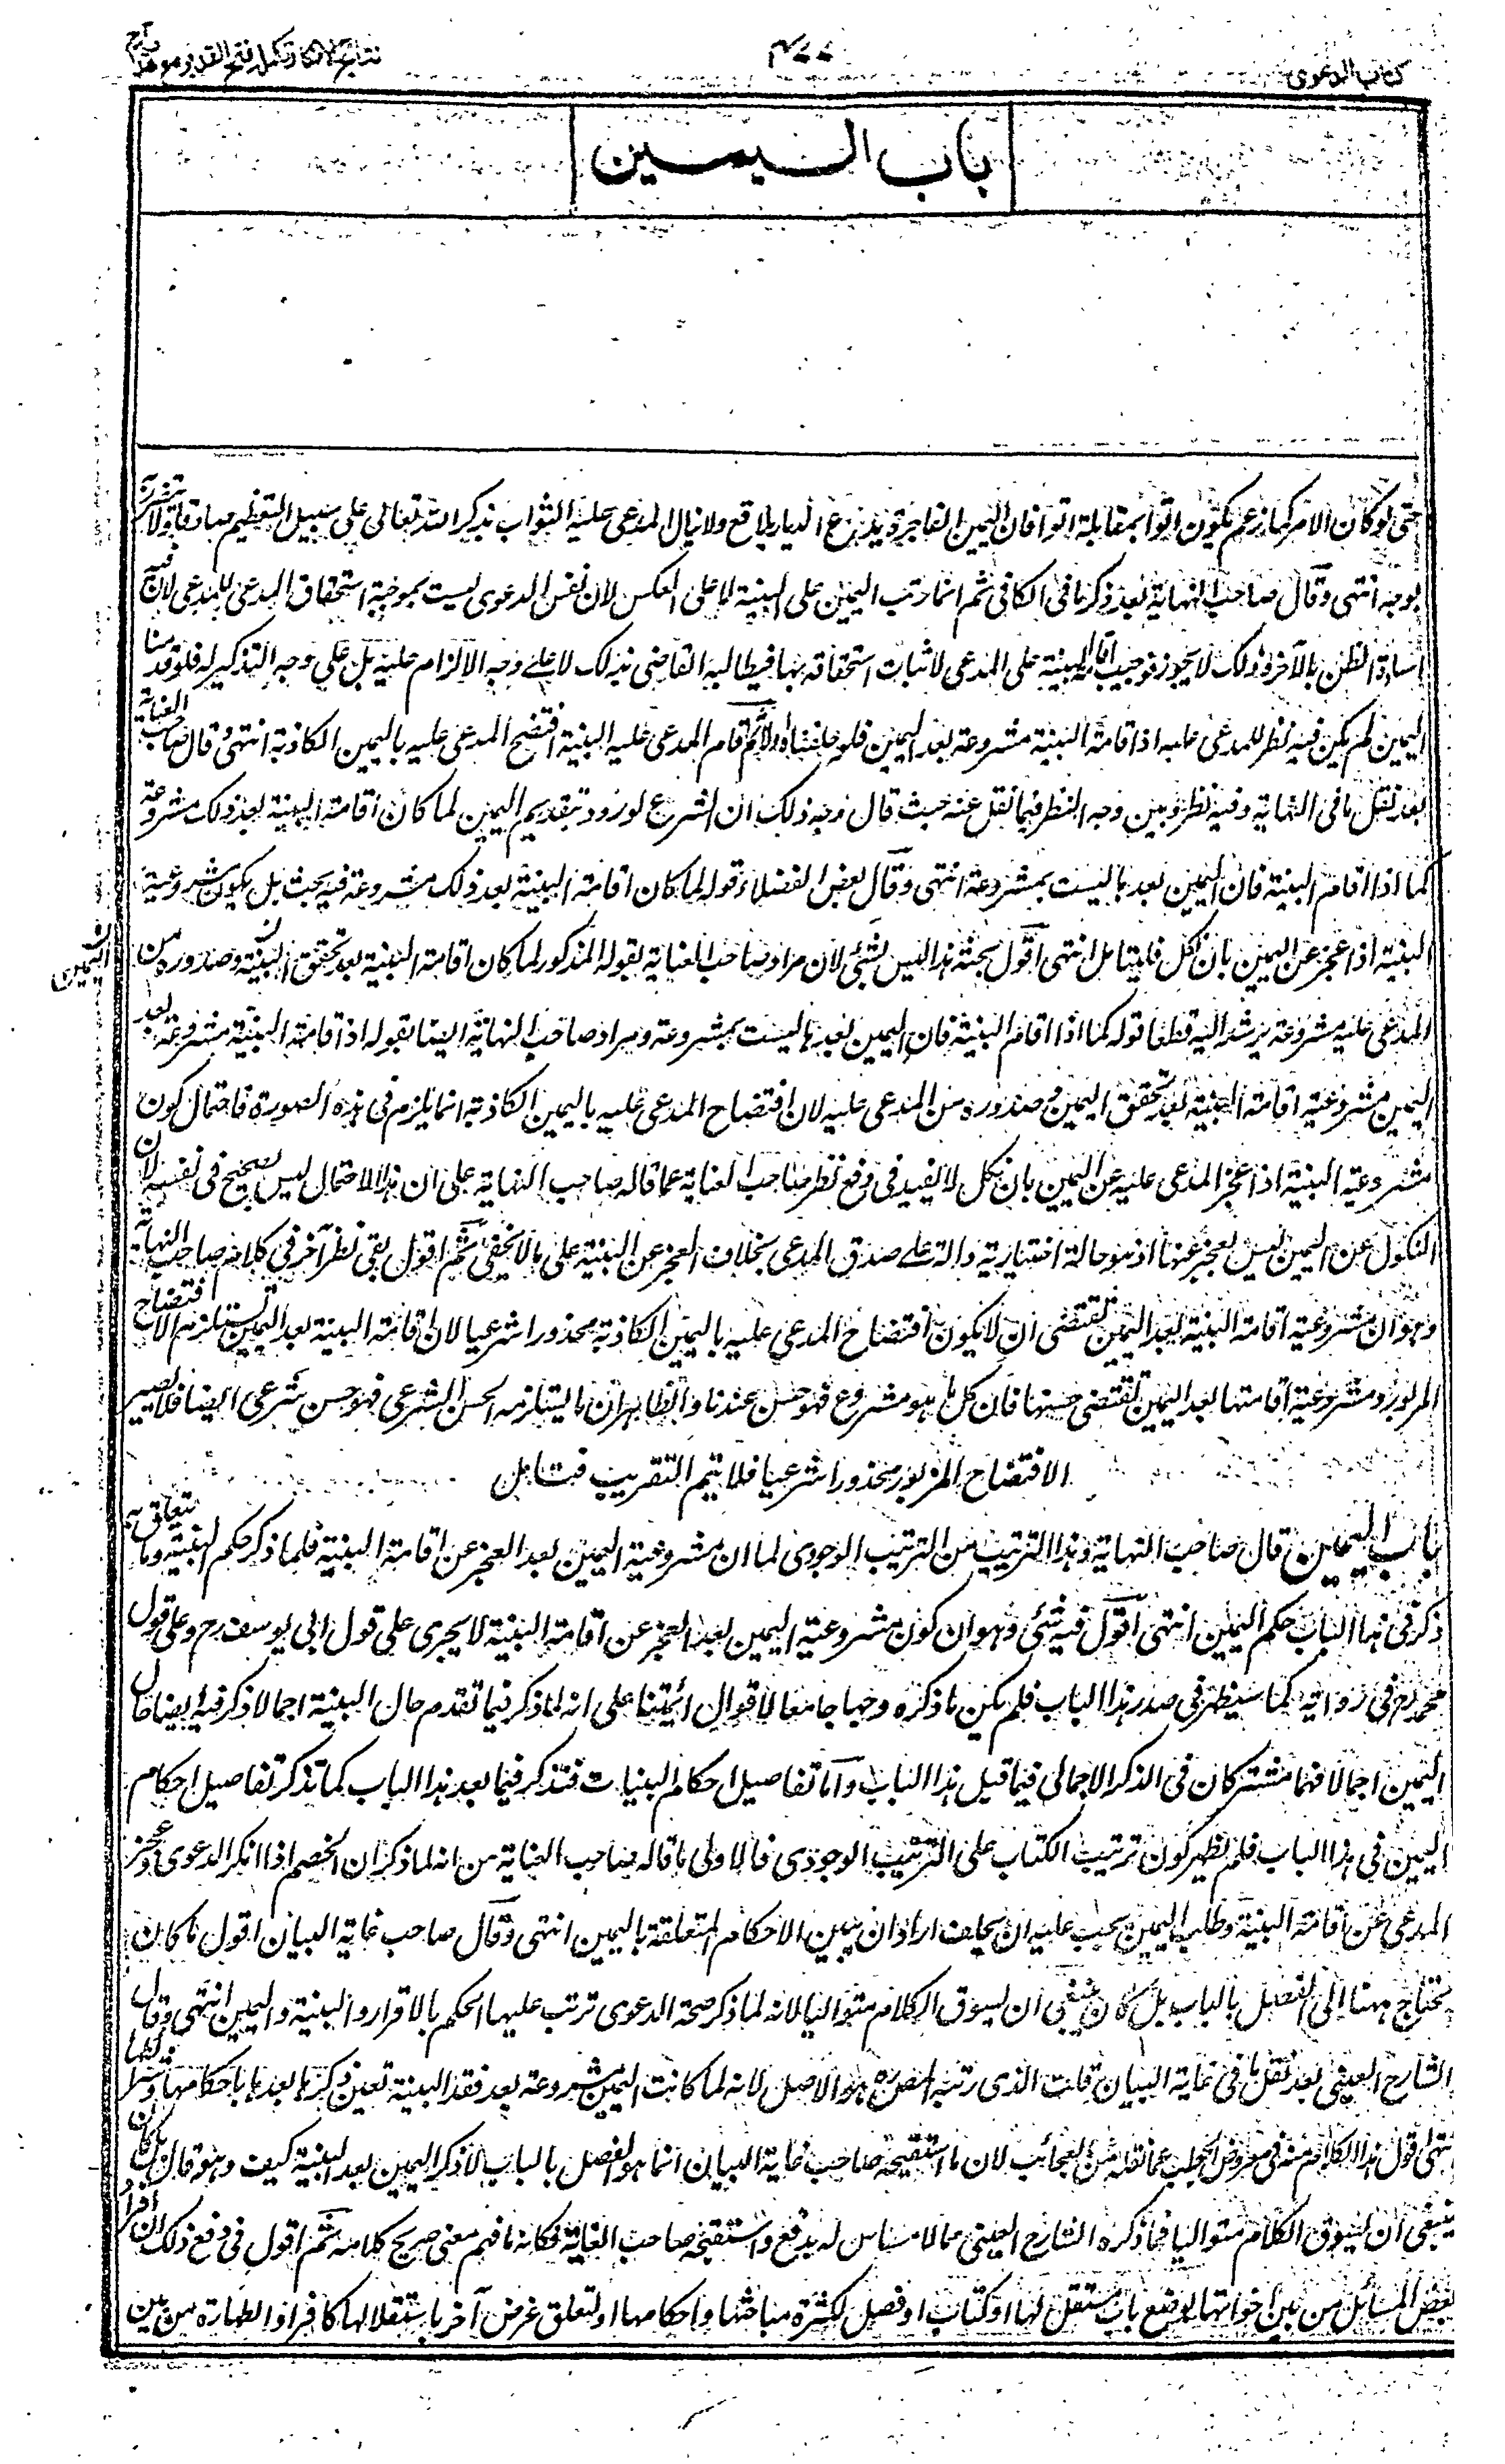 كتاب الدعوى
نتائج الافكار تكملة فتح القدير مع هداية
باب اليمين
حتى لو كان الامر كما زعم يكون اتوا بمقابلة اتوا فان اليمين الفاجرة تدع الديار بلاقع ولا ينال المدعى عليه الثواب بذكر الله تعالى على سبيل التعظيم صادقا ولا يتضرر
بوجه انتهى وقال صاحب النهاية بعد ذكر ما في الكافي ثم انما رتب اليمين على البينة لا على العكس لان نفس الدعوى ليست بموجبة استحقاق المدعى للمدعي لان فيه
اساءة الظن بالآخر وذلك لا يجوز فوجب اقامة البينة على المدعى لاثبات استحقاقه بها فيطالبه القاضى بذلك لا على وجه الالزام عليه بل على وجه التذكير له فلو قدمنا
اليمين لم يكن فيه نظر للمدعى عليه اذ اقامة البينة مشروعة بعد اليمين فلو حلفناه اولا ثم اقام المدعى عليه البينة افتضح المدعى عليه باليمين الكاذبة انتهى وقال صاحب العناية
بعد نقل ما في النهاية وفيه نظر وبين وجه النظر فيما نقل عنه حيث قال وجه ذلك ان الشرع لو ورد بتقديم اليمين لما كان اقامة البينة بعد ذلك مشروعة
كما اذا اقام البينة فان اليمين بعدها ليست بمشروعة انتهى وقال بعض الفضلاء قوله لما كان اقامة البينة بعد ذلك مشروعة فيه بحث بل يكون مشروعية
البينة اذا عجز عن اليمين بان نكل فليتامل انتهى اقول بحثه هذا ليس بشئ لان مراد صاحب العناية بقوله المذكور لما كان اقامة البينة بعد تحقق اليمين وصدوره من
المدعى عليه مشروعة يرشد اليه قطعا قوله كما اذا اقام البينة فان اليمين بعدها ليست بمشروعة ومراد صاحب النهاية ايضا بقوله اذ اقامة البينة مشروعة بعد
اليمين مشروعية اقامة البينة بعد تحقق اليمين وصدوره من المدعى عليه لان افتضاح المدعى عليه باليمين الكاذبة انما يلزم في هذه الصورة فاحتمال كون
مشروعية البينة اذا عجز المدعى عليه عن اليمين بان نكل لا يفيد في دفع نظر صاحب العناية عما قاله صاحب النهاية على ان هذا الاحتمال ليس بصحيح في نفسه لان
النكول عن اليمين ليس بعجز عنها اذ هو حالة اختيارية دالة على صدق المدعى بخلاف العجز عن البينة على ما لا يخفى ثم اقول بقى نظر آخر في كلام صاحب النهاية
وهو ان مشروعية اقامة البينة بعد اليمين تقتضى ان لا يكون افتضاح المدعى عليه باليمين الكاذبة محذورا شرعيا لان اقامة البينة بعد اليمين تستلزم الافتضاح
المزبور ومشروعية اقامتها بعد اليمين تقتضى حسنها فان كل ما هو مشروع فهو حسن عندنا والظاهر ان ما يستلزمه الحسن الشرعى فهو حسن شرعى ايضا فلا يصير
الافتضاح المزبور محذورا شرعيا فلا يتم التقريب فتامل
باب اليمين قال صاحب النهاية وهذا الترتيب من الترتيب الوجودى لما ان مشروعية اليمين بعد العجز عن اقامة البينة فلما ذكر حكم البينة وما يتعلق به
ذكر في هذا الباب حكم اليمين انتهى اقول فيه شئ وهو ان كون مشروعية اليمين بعد العجز عن اقامة البينة لا يجرى على قول ابى يوسف رح وعلى قول
محمد رح في رواية كما سيظهر في صدر هذا الباب فلم يكن ما ذكره وجها جامعا لاقوال ائمتنا على انه لما ذكر فيما تقدم حال البينة اجمالا ذكر فيه ايضا حال
اليمين اجمالا فهما مشتركان في الذكر الاجمالى فيما قبل هذا الباب واما تفاصيل احكام البينات فتذكر فيما بعد هذا الباب كما تذكر تفاصيل احكام
اليمين في هذا الباب فلم يظهر كون ترتيب الكتاب على الترتيب الوجودى فالاولى ما قاله صاحب العناية من انه لما ذكر ان الخصم اذا انكر الدعوى وعجز
المدعى عن اقامة البينة وطلب اليمين يجب عليه ان يحلف اراد ان يبين الاحكام المتعلقة باليمين انتهى وقال صاحب غاية البيان اقول ما كان
يحتاج ههنا الى الفصل بالباب بل كان ينبغى ان يسوق الكلام متواليا لانه لما ذكر صحة الدعوى ترتب عليها الحكم بالاقرار والبينة واليمين انتهى وقال
الشارح العينى بعد نقل ما في غاية البيان قلت الذى رتبه المص ره هو الاصل لانه لما كانت اليمين مشروعة بعد فقد البينة تعين ذكرها بعدها باحكامها وشرائطها
انتهى اقول هذا الكلام منه في معرض الجواب عما نقله من العجائب لان ما استقبحه صاحب غاية البيان انما هو الفصل بالباب لا ذكر اليمين بعد البينة كيف وهو قال بل كان
ينبغى ان يسوق الكلام متواليا فما ذكره الشارح العينى مما لا مساس له بدفع ما استقبحه صاحب الغاية فكانه ما فهم معنى صريح كلامه ثم اقول في دفع ذلك ان افراز
بعض المسائل من بين اخواتها بوضع باب مستقل لها او كتاب او فصل لكثرة مباحثها واحكامها او لتعلق غرض آخر باستقلالها كافراز الطهارة من بين